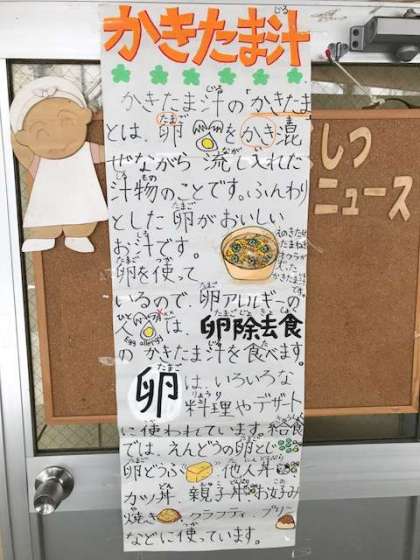 かきたま汁
かきたま汁の「かきたま」
とは、卵をかき混
ぜながら流し入れた
汁物のことです。ふんわり
とした卵がおいしい
お汁です。
卵を使って
いるので、卵アレルギーの
人は、卵除去食
Egg allergy
の かきたま汁を食べます。
卵は、いろいろな
料理やデザート
に使われています。給食
では、えんどうの卵とじ
卵どうふ 他人丼
カツ丼、親子丼、お好み
焼き、クラフティ、プリン
などに使っています。
しつ
ニュース